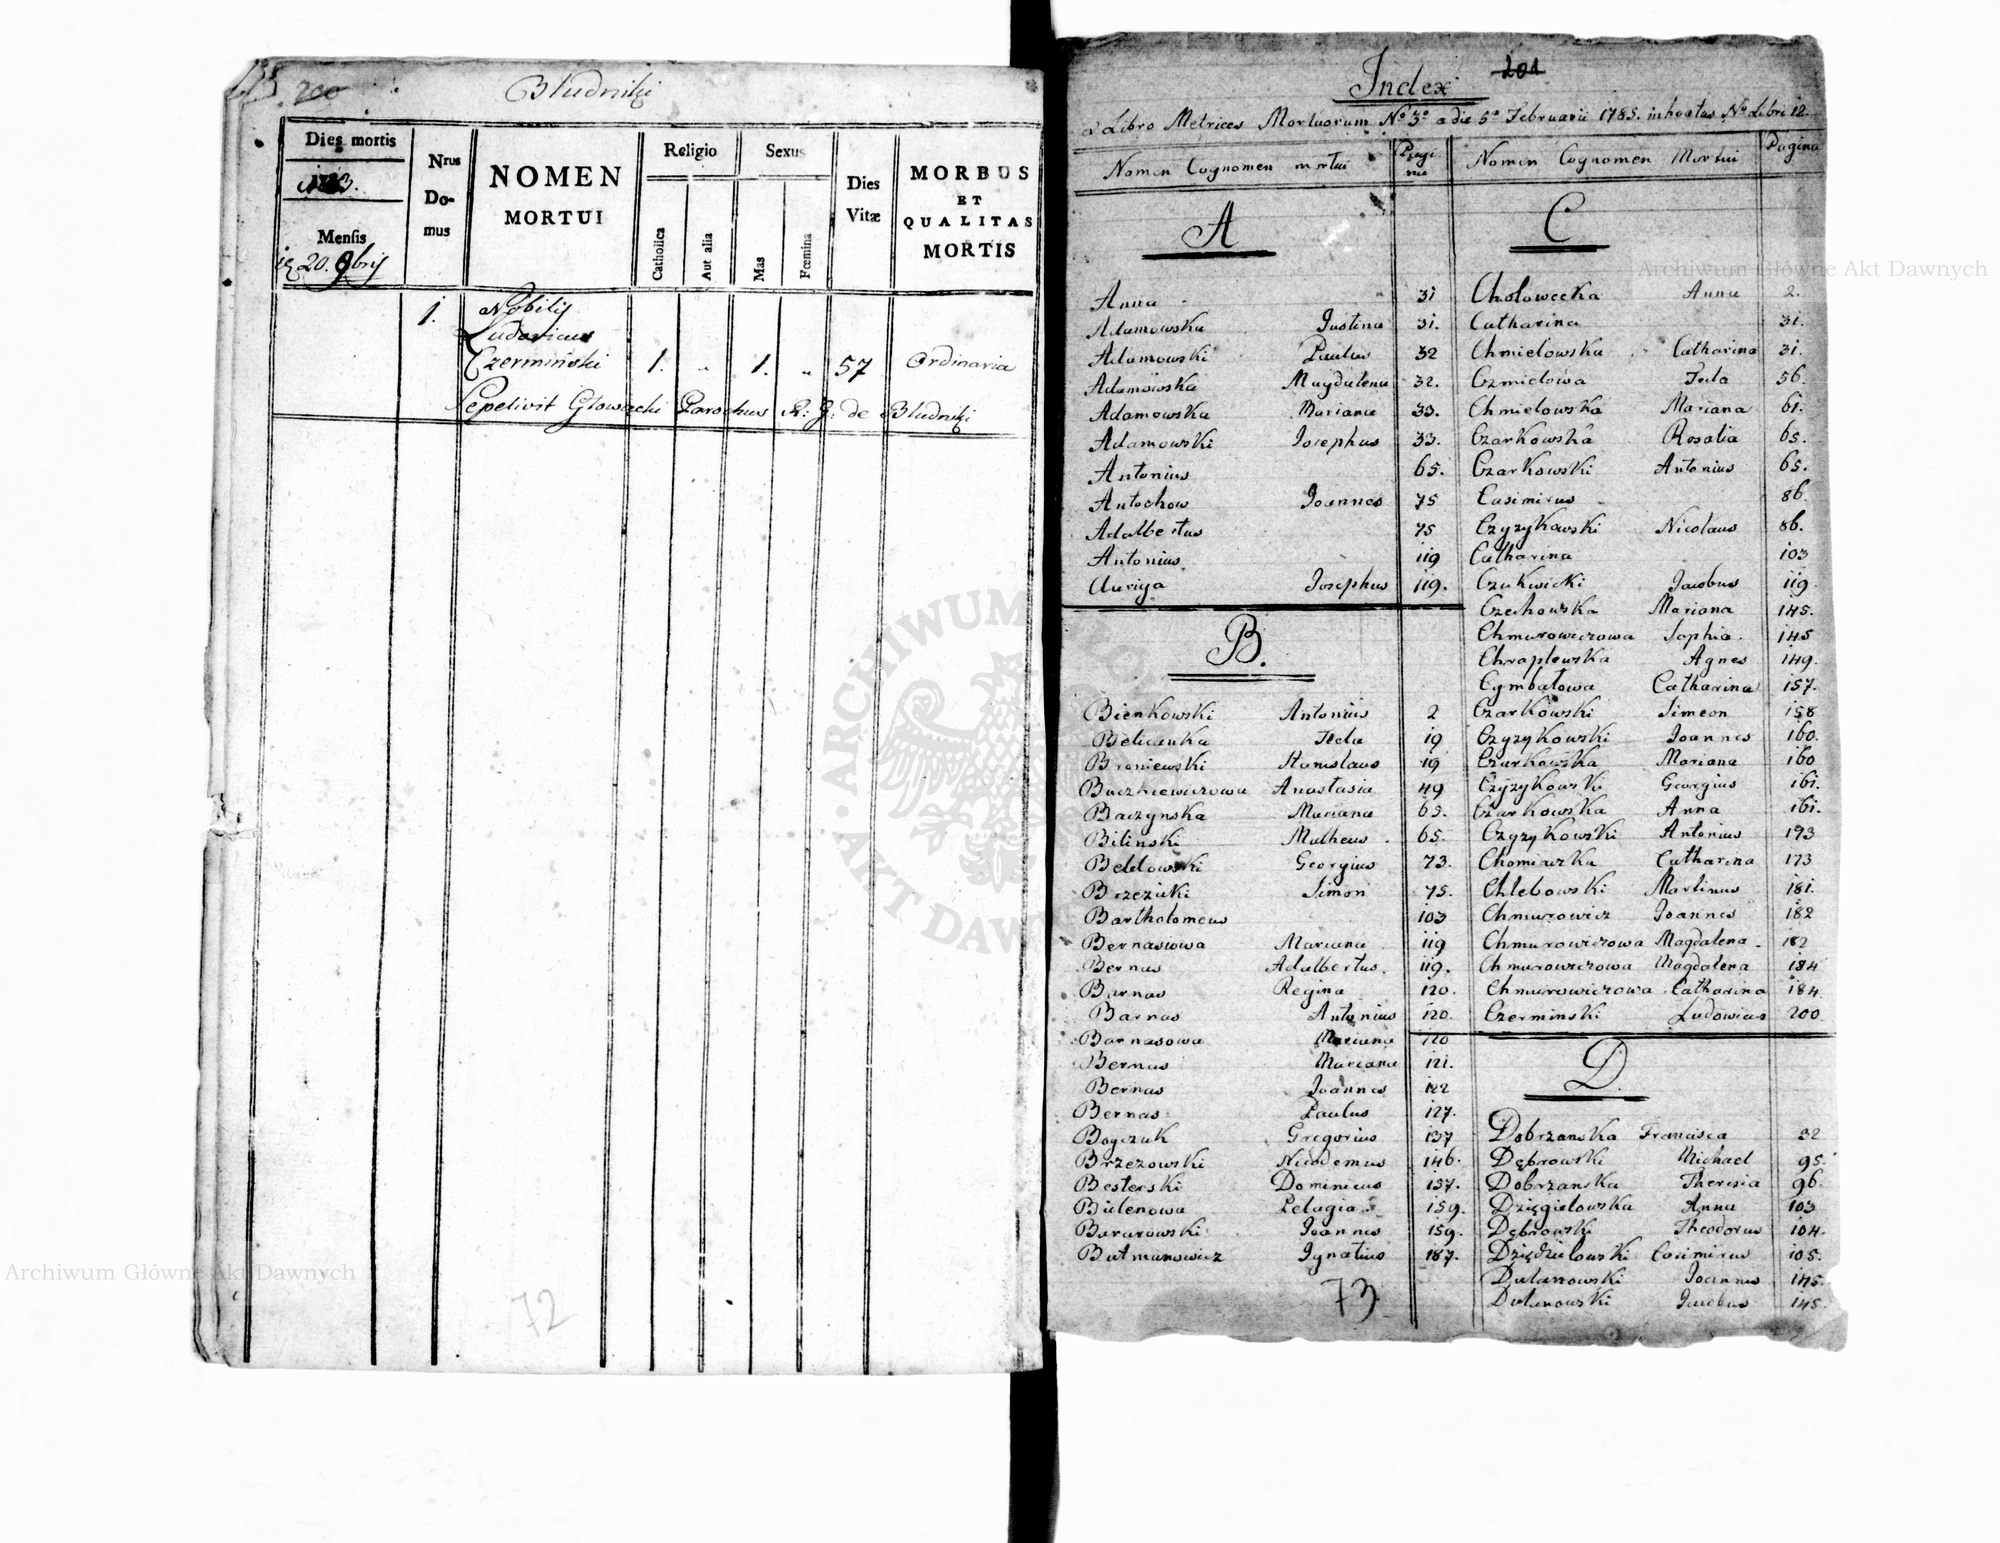 200
Błudniki
Dies mortis
Mensis
20. 9bris
Nrus Do- mus
NOMEN
MORTUI
Religio
Catholica
Aut alia
Sexus
Mas
Fœmina
Dies
Vitæ
MORBUS
ET
QUALITAS
MORTIS
1. Nobilis
Ludovicus
Czermiński 1. " 1. " 57 Ordinaria
Sepelivit Głowacki Parochus R: G: de Błudniki
72
201
Index
a Libro Metrices Mortuorum No 3o a die 5a Februarii 1785. inhoatus No Libri 12.
Nomen Cognomen mortui
Pagi
na
A
Anna 31
Adamowska Justina 31.
Adamowski Paulus 32
Adamowska Magdalena 32.
Adamowska Mariana 33.
Adamowski Josephus 33.
Antonius 65.
Antochow Joannes 75
Adalbertus 75
Antonius 119
Auriga Josephus 119.
B.
Bienkowski Antonius 2
Bieliawka Thecla 19
Broniewski Stanislaus 19
Buczkiewiczowa Anastasia 49
Baczynska Mariana 65.
Bilinski Matheus 65.
Beldowski Georgius 73.
Brzezicki Simon 75.
Bartholomeus 103
Bernasiowa Mariana 119
Bernas Adalbertus 119.
Barnas Regina 120.
Barnas Antonius 120.
Barnasowa Mariana 120
Bernas Mariana 121.
Bernas Joannes 122
Bernas Paulus 127.
Boyczuk Gregorius 137
Brzezowski Nicodemus 146.
Besterski Dominicus 157.
Bielenowa Pelagia 159.
Bararowski Joannes 159.
Butmanowicz Ignatius 187.
73
Nomen Cognomen Mortui
Pagina
C
Chołowecka Anna 2.
Catharina 31.
Chmielowska Catharina 31.
Czmielowa Tecla 56.
Chmielowska Mariana 61.
Czarkowska Rosalia 65.
Czarkowski Antonius 65.
Casimirus 86.
Czyzykowski Nicolaus 86.
Catharina 103
Czukwicki Jacobus 119.
Czechowska Mariana 145.
Chmurowiczowa Sophia 145
Chraplewska Agnes 149.
Cymbałowa Catharina 157.
Czarkowski Simeon 158
Czyzykowski Joannes 160.
Czarkowska Mariana 160
Czyzykowski Georgius 161.
Czarkowska Anna 161.
Czyzykowski Antonius 193
Chomiczka Catharina 173
Chlebowski Martinus 181.
Chmurowicz Joannes 182
Chmurowiczowa Magdalena 182
Chmurowiczowa Magdalena 184
Chmurowiczowa Catharina 184.
Czerminski Ludowicus 200.
D.
Dobrzanska Francisca 32
Dębrowski Michael 95.
Dobrzanska Theresia 96.
Dzięgielowska Anna 103
Dębrowski Theodorus 104.
Dzięzielowski Casimirus 105.
Dulanowski Joannes 145.
Dulanowski Jacobus 145.
Archiwum Główne Akt Dawnych
Archiwum Główne Akt Dawnych